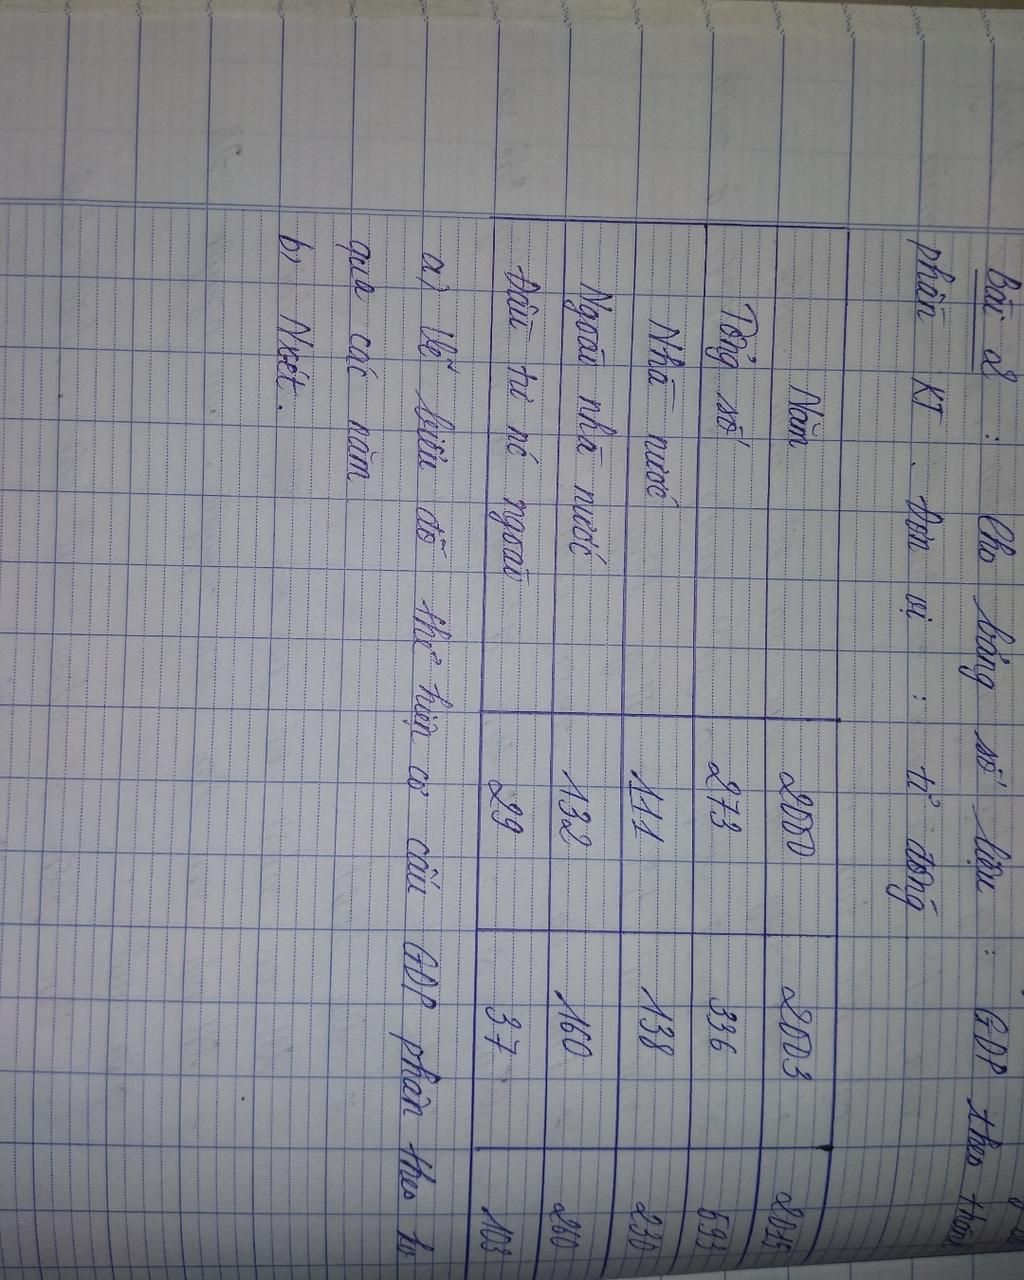 Bài 2 : Cho bảng số liệu : GDP theo thành
phần KT . Đơn vị : tỉ đồng
Năm 2000 2003 2015
Tổng số 273 336 593
Nhà nước 111 138 230
Ngoài nhà nước 132 160 260
Đầu tư nc ngoài 29 37 103
a) Vẽ biểu đồ thể hiện cơ cấu GDP phân theo
qua các năm
b) Nxét .